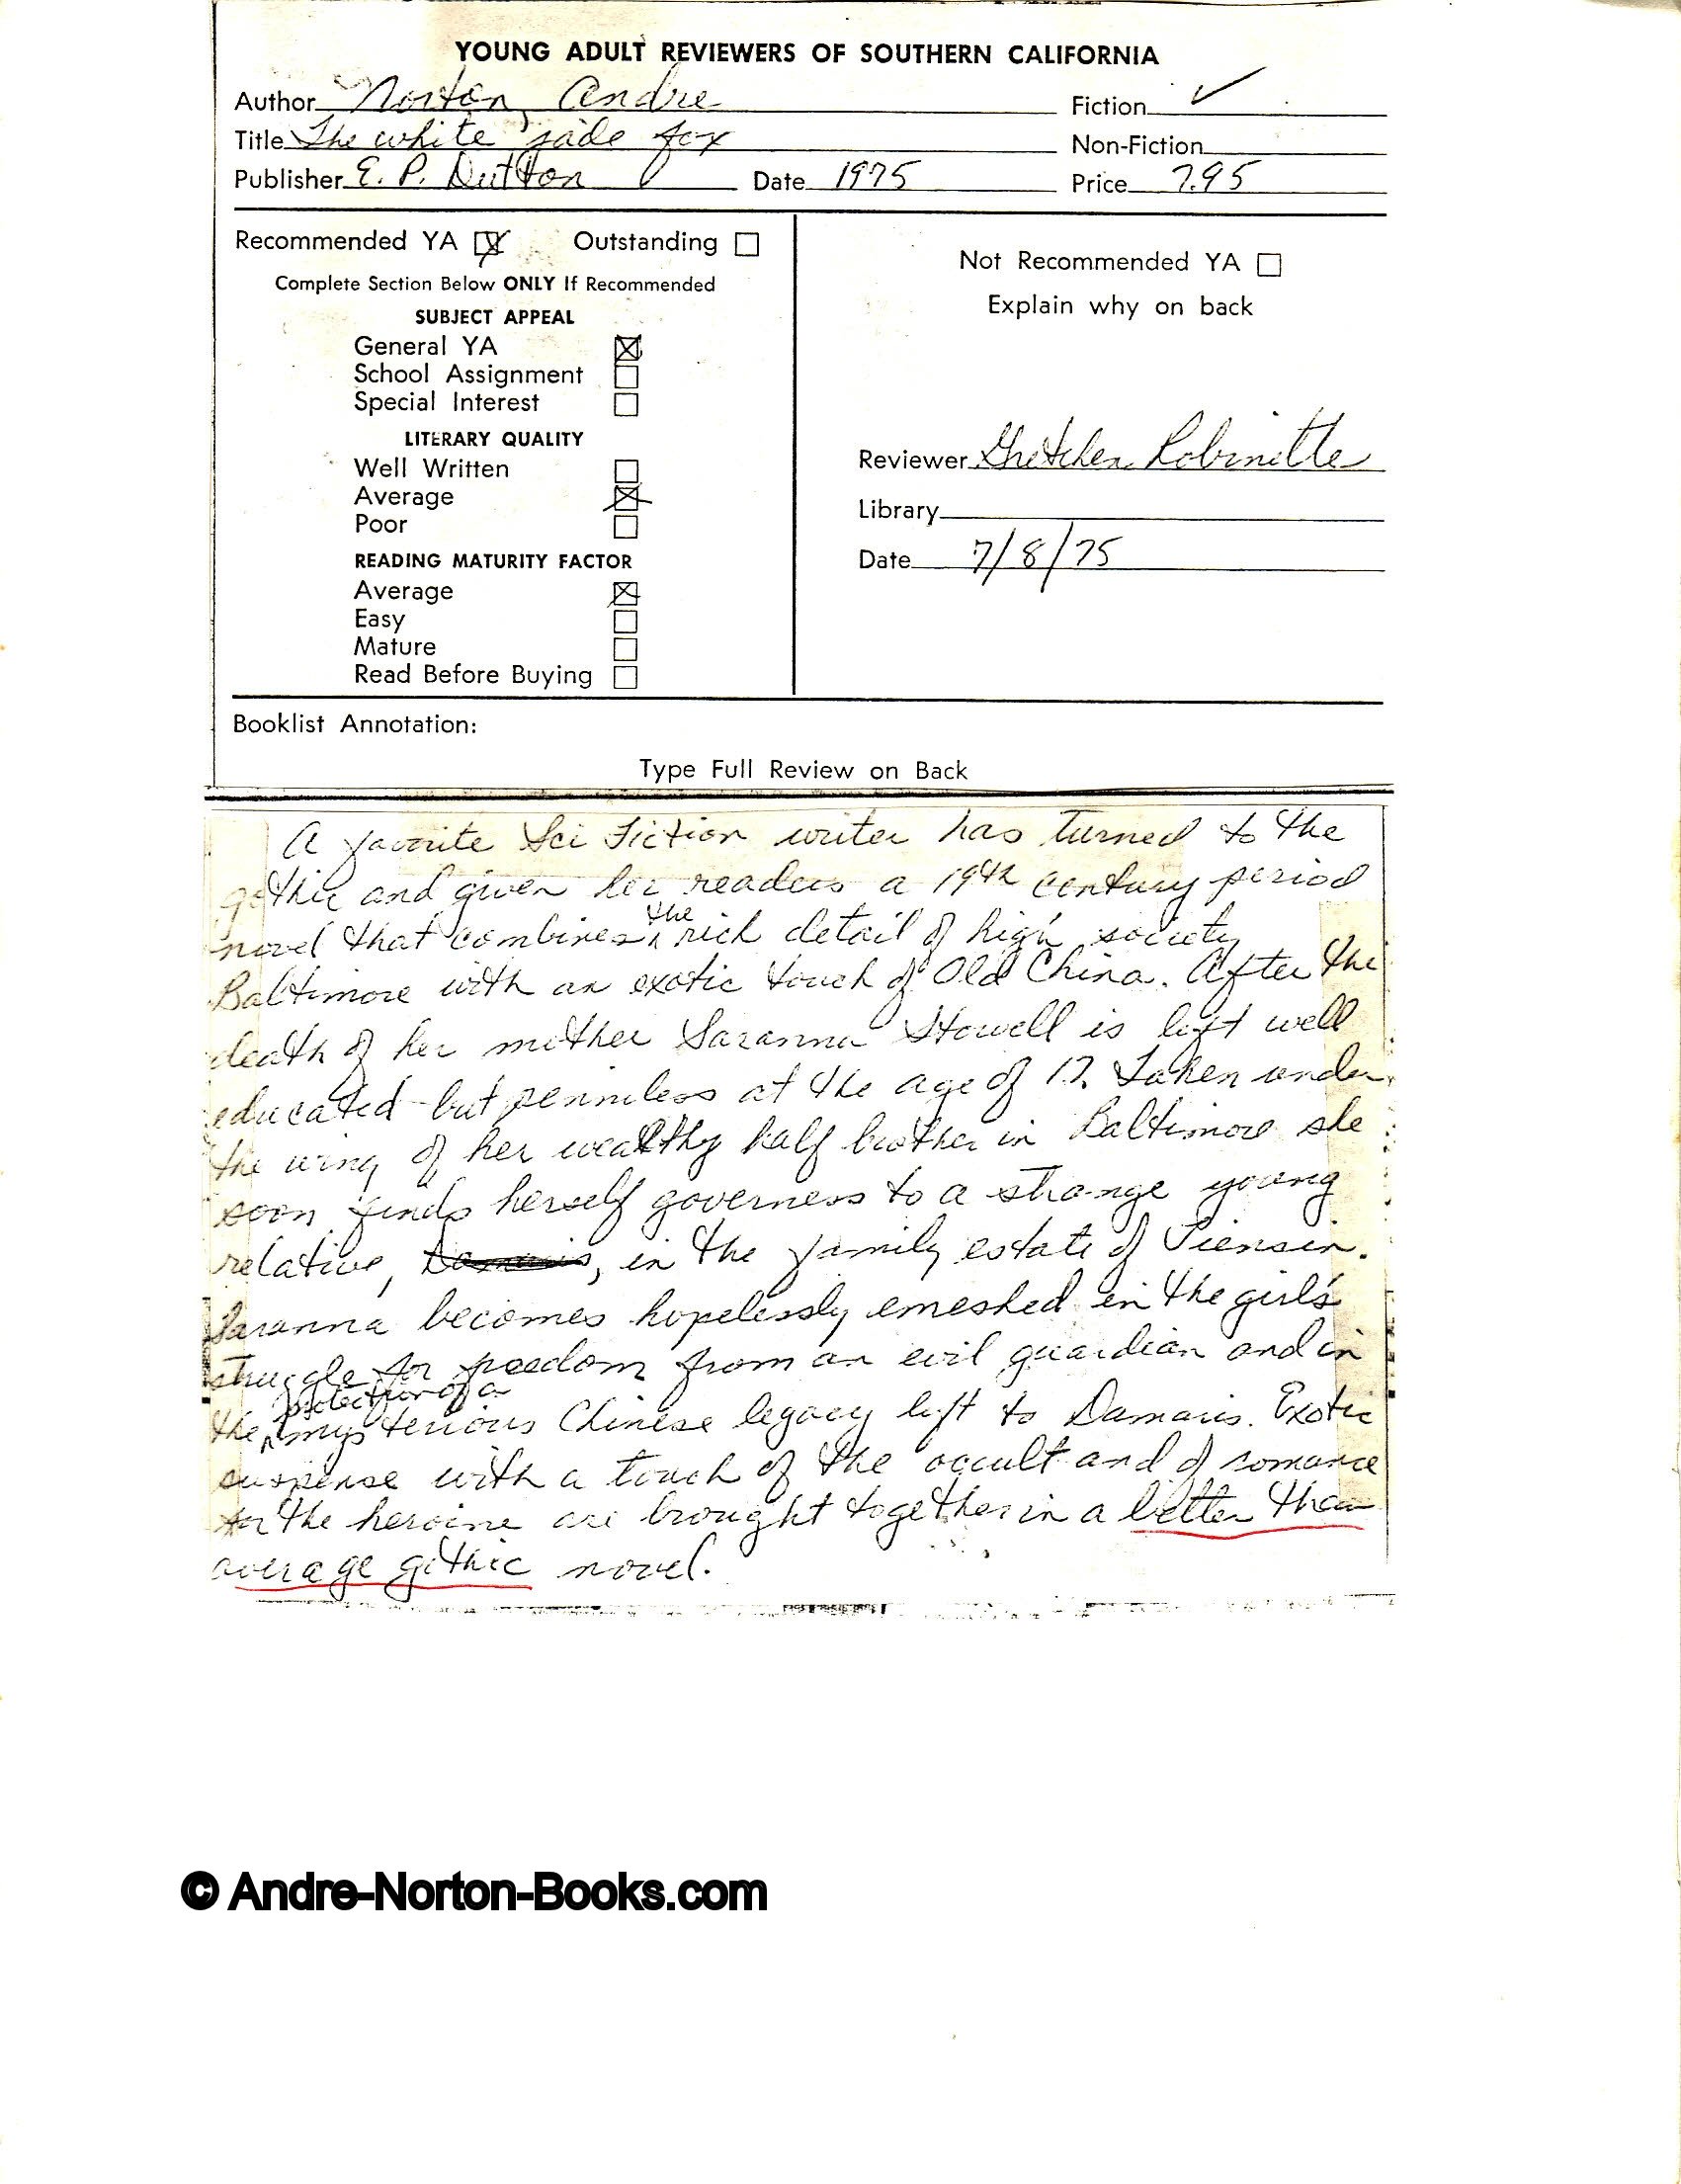 YOUNG ADULT REVIEWERS OF SOUTHERN CALIFORNIA
Author Norton, Andre Fiction ✓
Title The white jade fox Non-Fiction
Publisher E. P. Dutton Date 1975 Price 7.95
Recommended YA ☒ Outstanding ☐
Not Recommended YA ☐
Complete Section Below ONLY If Recommended
Explain why on back
SUBJECT APPEAL
General YA ☒
School Assignment ☐
Special Interest ☐
LITERARY QUALITY
Well Written ☐
Average ☒
Poor ☐
READING MATURITY FACTOR
Average ☒
Easy ☐
Mature ☐
Read Before Buying ☐
Reviewer Gretchen Robinette
Library
Date 7/8/75
Booklist Annotation:
Type Full Review on Back
A favorite Sci Fiction writer has turned to the
gothic and given her readers a 19th century period
novel that combines the rich detail of high society
Baltimore with an exotic touch of Old China. After the
death of her mother Saranna Stowell is left well
educated but penniless at the age of 17. Taken under
the wing of her wealthy half brother in Baltimore she
soon finds herself governess to a strange young
relative, Damaris, in the family estate of Tiensin.
Saranna becomes hopelessly emeshed in the girl's
struggle for freedom from an evil guardian and in
the protection of a mysterious Chinese legacy left to Damaris. Exotic
suspense with a touch of the occult and of romance
for the heroine are brought together in a better than
average gothic novel.
© Andre-Norton-Books.com